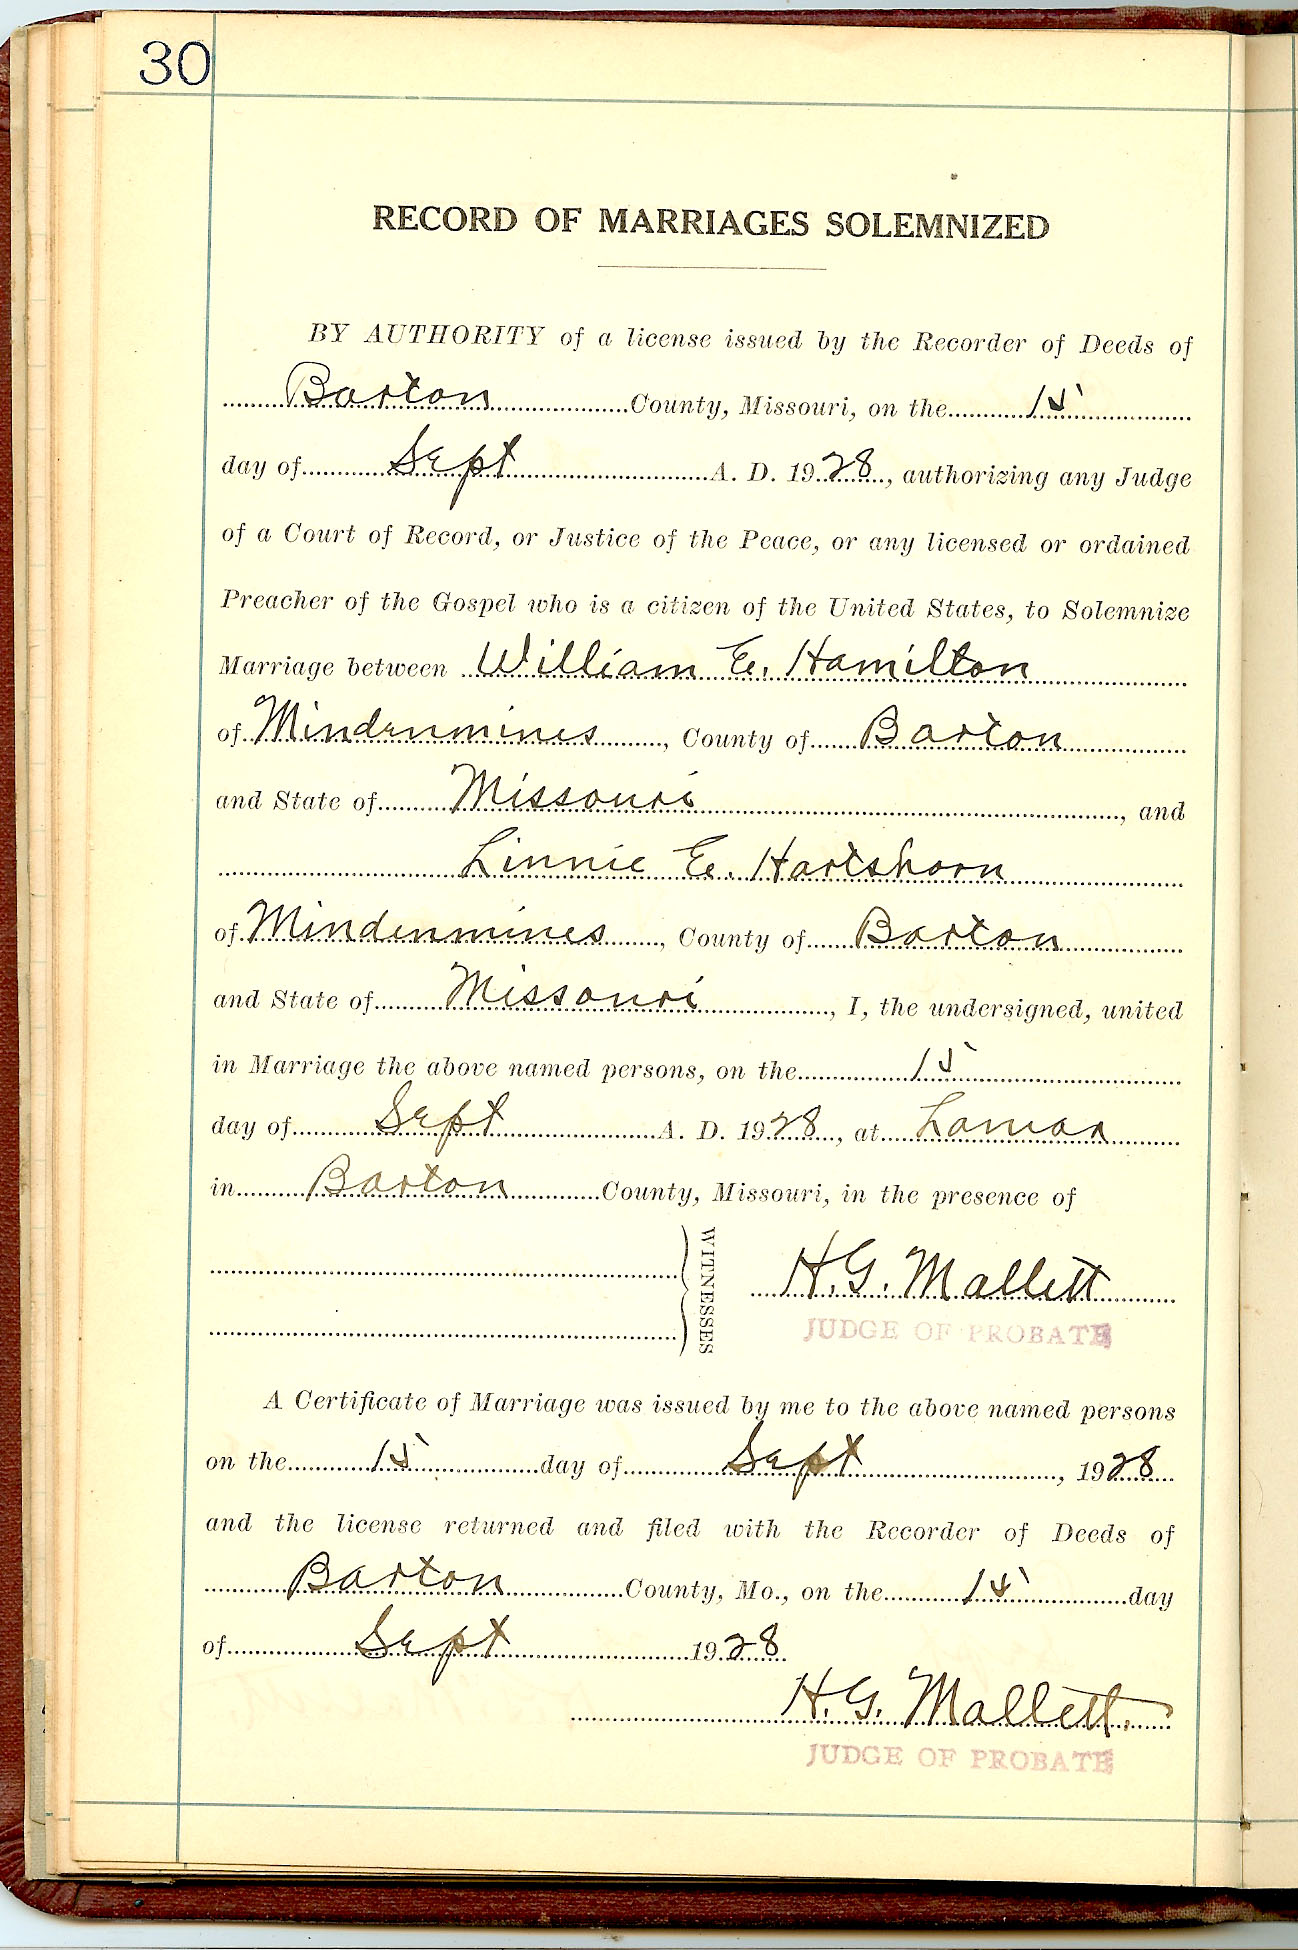 30
RECORD OF MARRIAGES SOLEMNIZED
BY AUTHORITY of a license issued by the Recorder of Deeds of
Barton County, Missouri, on the 15
day of Sept A. D. 1928, authorizing any Judge
of a Court of Record, or Justice of the Peace, or any licensed or ordained
Preacher of the Gospel who is a citizen of the United States, to Solemnize
Marriage between William E. Hamilton
of Mindenmines, County of Barton
and State of Missouri, and
Linnie E. Hartshorn
of Mindenmines, County of Barton
and State of Missouri, I, the undersigned, united
in Marriage the above named persons, on the 15
day of Sept A. D. 1928, at Lamar
in Barton County, Missouri, in the presence of
WITNESSES
H. G. Mallett
JUDGE OF PROBATE
A Certificate of Marriage was issued by me to the above named persons
on the 15 day of Sept, 1928
and the license returned and filed with the Recorder of Deeds of
Barton County, Mo., on the 15 day
of Sept 1928
H. G. Mallett.
JUDGE OF PROBATE